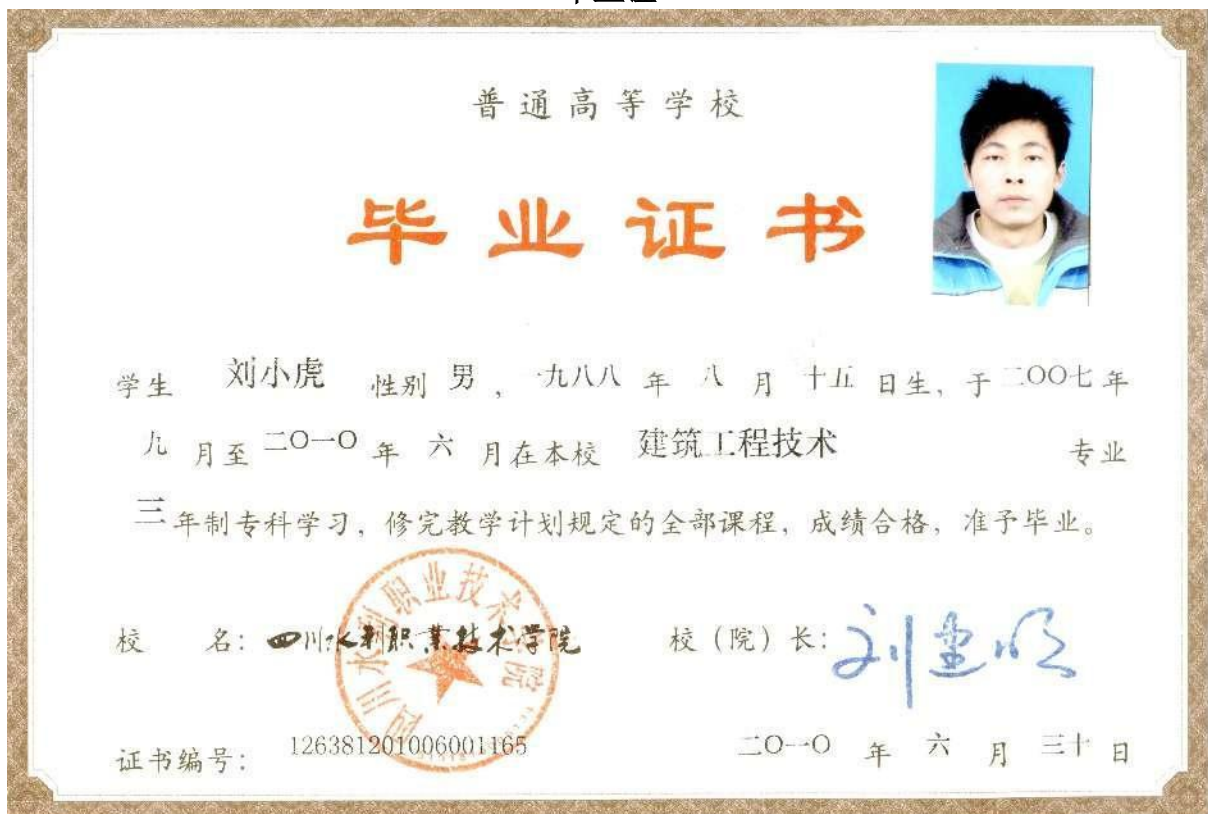 普通高等学校
毕业证书
学生 刘小虎 性别 男，一九八八 年 八 月 十五 日生，于二〇〇七年
九 月至 二〇一〇 年 六 月在本校 建筑工程技术 专业
三年制专科学习，修完教学计划规定的全部课程，成绩合格，准予毕业。
校 名：四川水利职业技术学院 校（院）长：
四川水利职业技术学院
证书编号：126381201006001165 二〇一〇 年 六 月 三十 日